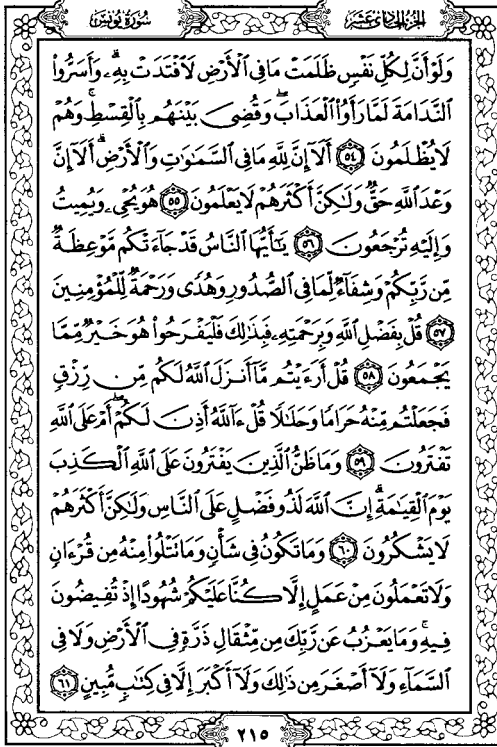 الجزء الحادي عشر
سورة يونس
وَلَوْ أَنَّ لِكُلِّ نَفْسٍ ظَلَمَتْ مَا فِي الْأَرْضِ لَافْتَدَتْ بِهِۦۗ وَأَسَرُّوا۟
النَّدَامَةَ لَمَّا رَأَوُا۟ الْعَذَابَۖ وَقُضِىَ بَيْنَهُم بِالْقِسْطِۚ وَهُمْ
لَا يُظْلَمُونَ ٥٤ أَلَآ إِنَّ لِلَّهِ مَا فِي السَّمَٰوَٰتِ وَالْأَرْضِۗ أَلَآ إِنَّ
وَعْدَ اللَّهِ حَقٌّ وَلَٰكِنَّ أَكْثَرَهُمْ لَا يَعْلَمُونَ ٥٥ هُوَ يُحْىِۦ وَيُمِيتُ
وَإِلَيْهِ تُرْجَعُونَ ٥٦ يَٰٓأَيُّهَا النَّاسُ قَدْ جَآءَتْكُم مَّوْعِظَةٌ
مِّن رَّبِّكُمْ وَشِفَآءٌ لِّمَا فِي الصُّدُورِ وَهُدًى وَرَحْمَةٌ لِّلْمُؤْمِنِينَ
٥٧ قُلْ بِفَضْلِ اللَّهِ وَبِرَحْمَتِهِۦ فَبِذَٰلِكَ فَلْيَفْرَحُوا۟ هُوَ خَيْرٌ مِّمَّا
يَجْمَعُونَ ٥٨ قُلْ أَرَءَيْتُم مَّآ أَنزَلَ اللَّهُ لَكُم مِّن رِّزْقٍ
فَجَعَلْتُم مِّنْهُ حَرَامًا وَحَلَٰلًا قُلْ ءَآللَّهُ أَذِنَ لَكُمْۖ أَمْ عَلَى اللَّهِ
تَفْتَرُونَ ٥٩ وَمَا ظَنُّ الَّذِينَ يَفْتَرُونَ عَلَى اللَّهِ الْكَذِبَ
يَوْمَ الْقِيَٰمَةِۗ إِنَّ اللَّهَ لَذُو فَضْلٍ عَلَى النَّاسِ وَلَٰكِنَّ أَكْثَرَهُمْ
لَا يَشْكُرُونَ ٦٠ وَمَا تَكُونُ فِي شَأْنٍ وَمَا تَتْلُوا۟ مِنْهُ مِن قُرْءَانٍ
وَلَا تَعْمَلُونَ مِنْ عَمَلٍ إِلَّا كُنَّا عَلَيْكُمْ شُهُودًا إِذْ تُفِيضُونَ
فِيهِۚ وَمَا يَعْزُبُ عَن رَّبِّكَ مِن مِّثْقَالِ ذَرَّةٍ فِي الْأَرْضِ وَلَا فِي
السَّمَآءِ وَلَآ أَصْغَرَ مِن ذَٰلِكَ وَلَآ أَكْبَرَ إِلَّا فِي كِتَٰبٍ مُّبِينٍ ٦١
٢١٥